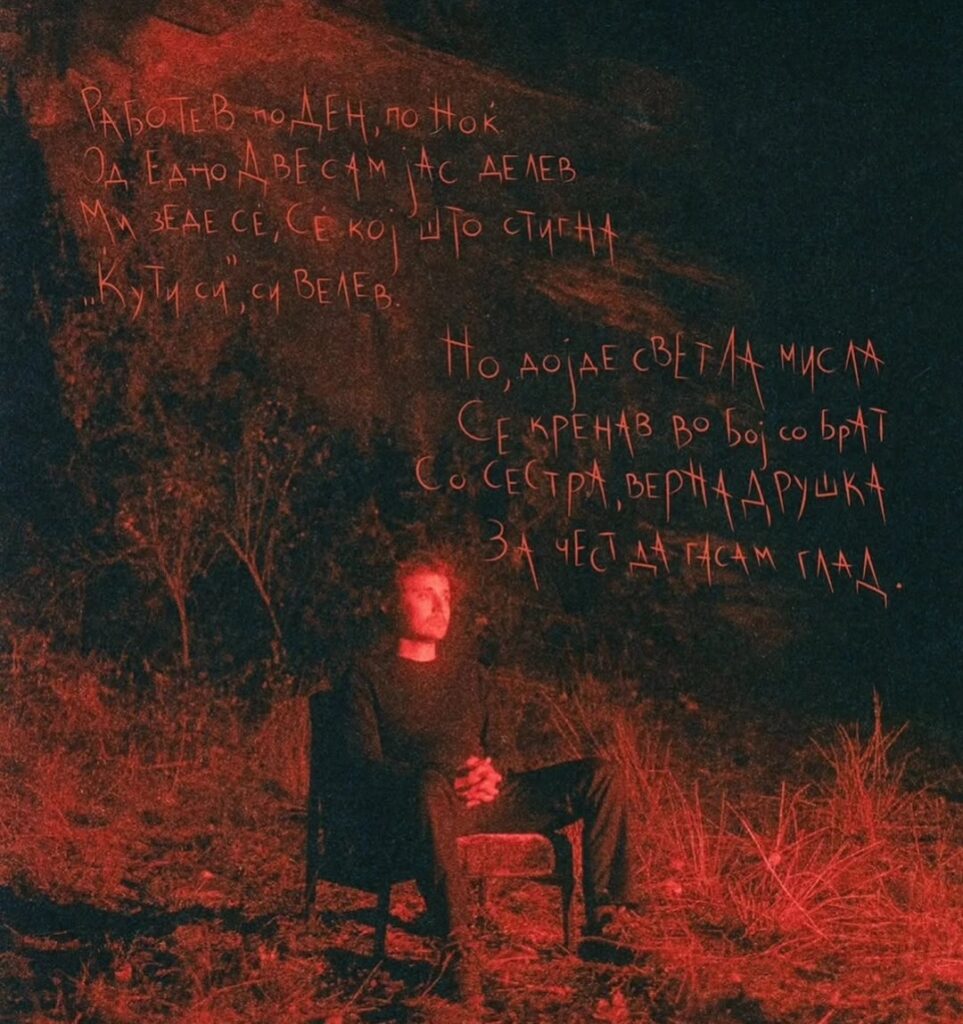 Работев по ден, по ноќ
Од едно две сам јас делев
Ми зеде сѐ, сѐ кој што стигна
„Кути си“, си велев.
Но, дојде светла мисла
Се кренав во бој со брат
Со сестра, верна друшка
За чест да гасам глад.